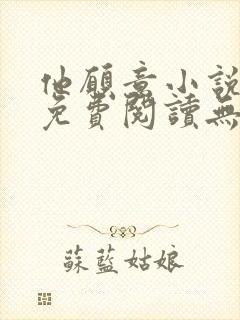 他願意小說
免費閱讀無
蘇藍姑娘